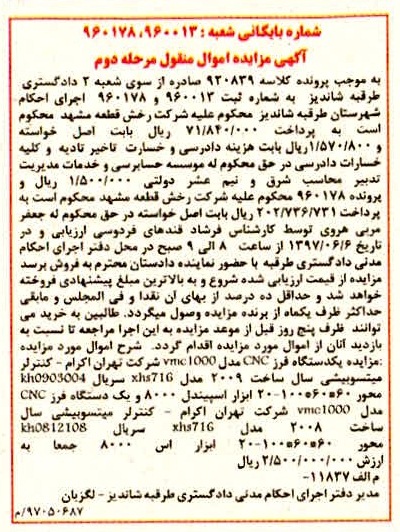 شماره بایگانی شعبه : ۹۶۰۰۱۳، ۹۶۰۱۷۸
آگهی مزایده اموال منقول مرحله دوم
به موجب پرونده کلاسه ۹۲۰۸۳۹ صادره از سوی شعبه ۲ دادگستری
طرقبه شاندیز به شماره ثبت ۹۶۰۰۱۳ و ۹۶۰۱۷۸ اجرای احکام
شهرستان طرقبه شاندیز محکوم علیه شرکت رخش قطعه مشهد محکوم
است به پرداخت ۷۱/۸۴۰/۰۰۰ ریال بابت اصل خواسته
و ۱/۵۷۰/۸۰۰ریال بابت هزینه دادرسی و خسارت تاخیر تادیه و کلیه
خسارات دادرسی در حق محکوم له موسسه حسابرسی و خدمات مدیریت
تدبیر محاسب شرق و نیم عشر دولتی ۱/۵۰۰/۰۰۰ ریال و
پرونده ۹۶۰۱۷۸ محکوم علیه شرکت رخش قطعه مشهد محکوم است به
پرداخت ۲۰۲/۷۳۶/۷۳۱ ریال بابت اصل خواسته در حق محکوم له جعفر
مربی هروی توسط کارشناس فرشاد قندهای فردوسی ارزیابی و در
تاریخ ۱۳۹۷/۰۶/۶ از ساعت ۸ الی ۹ صبح در محل دفتر اجرای احکام
مدنی دادگستری طرقبه با حضور نماینده دادستان محترم به فروش برسد
مزایده از قیمت ارزیابی شده شروع و به بالاترین مبلغ پیشنهادی فروخته
خواهد شد و حداقل ده درصد از بهای آن نقدا و فی المجلس و مابقی
حداکثر ظرف یکماه از برنده مزایده وصول میگردد. طالبین به خرید می
توانند ظرف پنج روز قبل از موعد مزایده به این اجرا مراجعه تا نسبت به
بازدید آنان از اموال مورد مزایده اقدام گردد. شرح اموال مورد مزایده
:مزایده یکدستگاه فرز CNC مدل vmc1000 شرکت تهران اکرام - کنترلر
میتسوبیشی سال ساخت ۲۰۰۹ مدل xhs716 سریال kh0903004
محور ۶۰*۶۰*۱۰۰-۲۰ ابزار اسپیندل ۸۰۰۰ و یک دستگاه فرز CNC
مدل vmc1000 شرکت تهران اکرام - کنترلر میتسوبیشی سال
ساخت ۲۰۰۸ مدل xhs716 سریال kh0812108
محور ۶۰*۶۰*۱۰۰-۲۰ ابزار اس ۸۰۰۰ جمعا به
ارزش ۲/۵۰۰/۰۰۰/۰۰۰ ریال
م الف ۱۱۸۳۷-
مدیر دفتر اجرای احکام مدنی دادگستری طرقبه شاندیز - لگزیان
۹۷۰۵۰۶۸۷/م